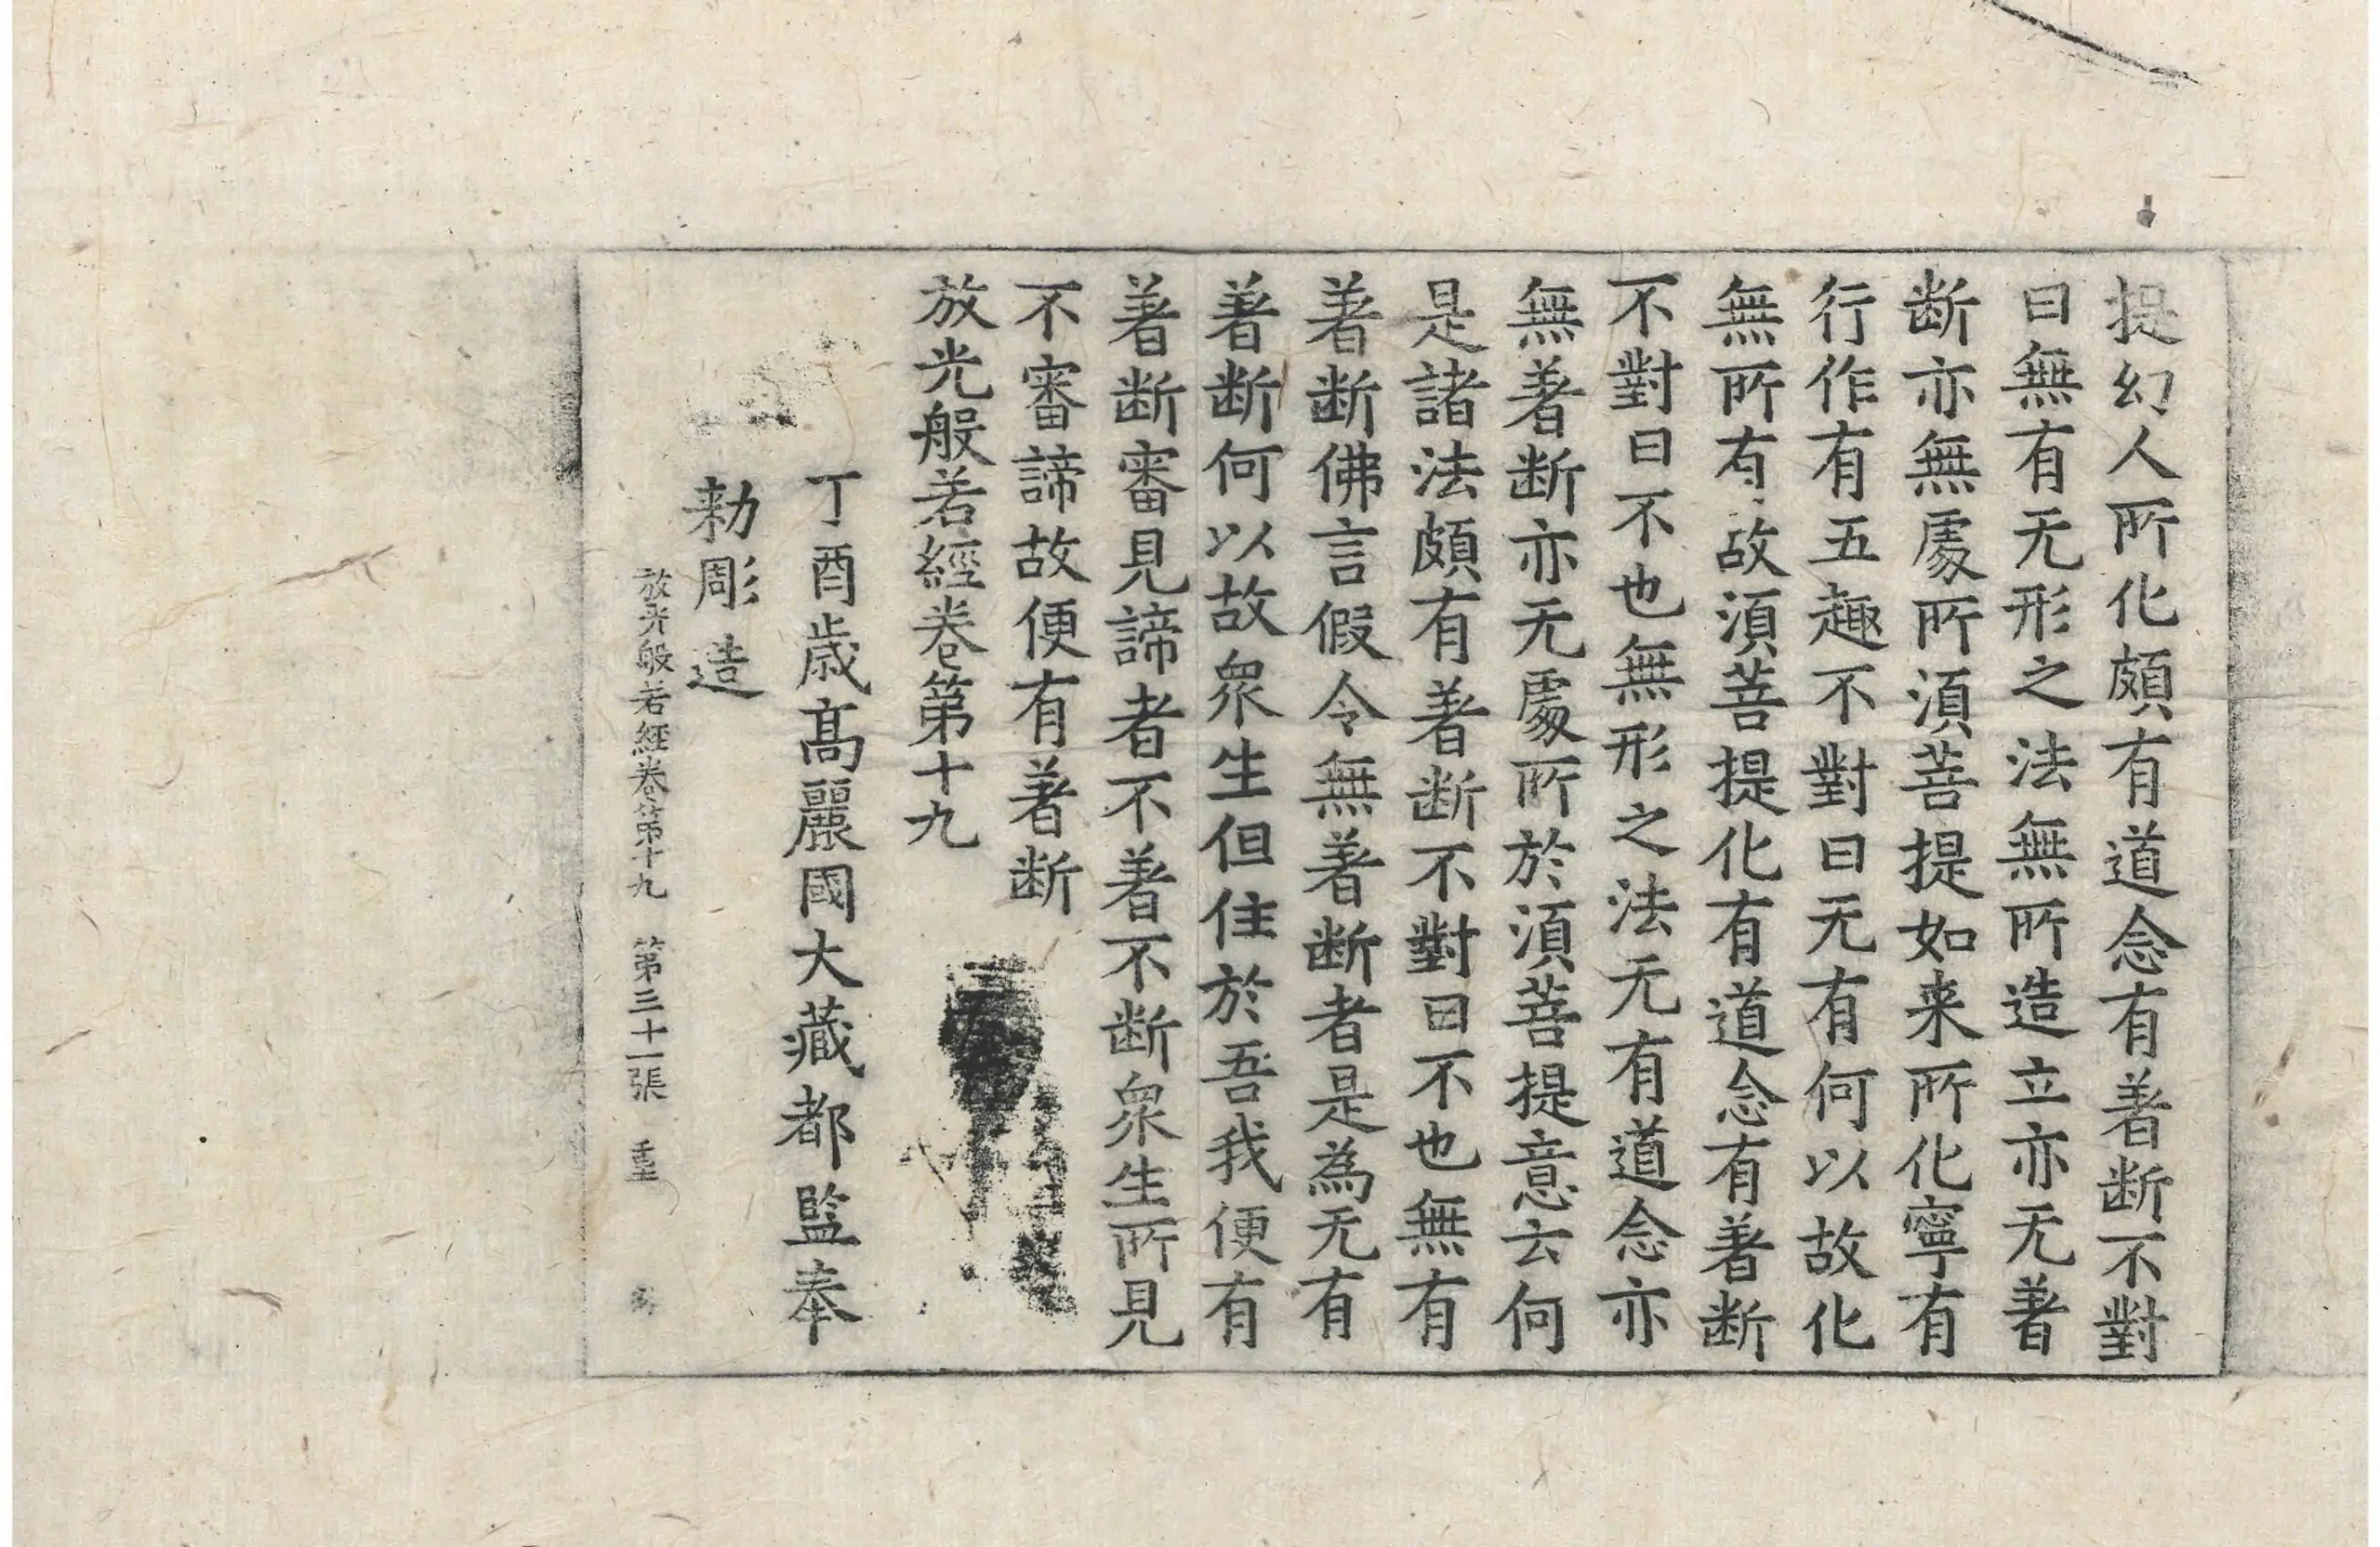 提幻人所化頗有道念有著断不對
曰無有无形之法無所造立亦无著
断亦無處所湏菩提如来所化寧有
行作有五趣不對曰无有何以故化
無所有故湏菩提化有道念有著断
不對曰不也無形之法无有道念亦
無著断亦无處所於湏菩提意云何
是諸法頗有著断不對曰不也無有
著断佛言假令無著断者是為无有
著断何以故衆生但住於吾我便有
著断審見諦者不著不断衆生所見
不審諦故便有著断
放光般若經卷第十九
丁酉歲高麗國大藏都監奉
勑彫造
放光般若經卷第十九 第三十一張 重